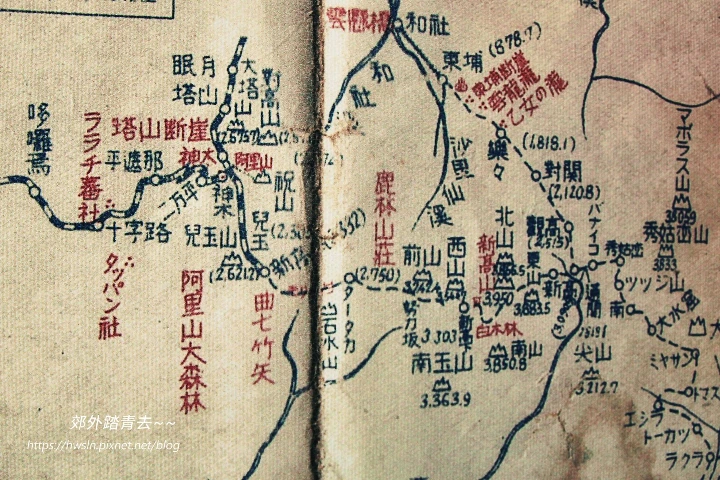 雲龍橋
和社
東埔
(878.7)
東埔断崖
雲龍瀧
乙女の瀧
和社
沙里仙溪
樂々
(1,818.1)
對關
(2,120.8)
バナイコ
觀高
(2,515)
マボラス山
秀姑巒山
秀姑巒
3833
ツツジ山
南
大水窟
ミヤサン
トマス
エシラ
トーカツ
ラクラ
眠月
塔山
大塔山
對高山
塔山断崖
神木
阿里山
祝山
哆囉焉
ララチ蕃社
平遮那
二万平
神木
十字路
兒玉山
兒玉
(2,621.2)
新高
タツパン社
阿里山大森林
曲七竹矢
鹿林山莊
(2,750)
タータカ
石水山
前山
西山
北山
新高山
3.950
東山
新高
通關
努力坂
3.303
新高
白木林
南玉山
3.363.9
南山
3.850.8
尖山
3.212.7
郊外踏青去~~
https://hwsln.pixnet.net/blog